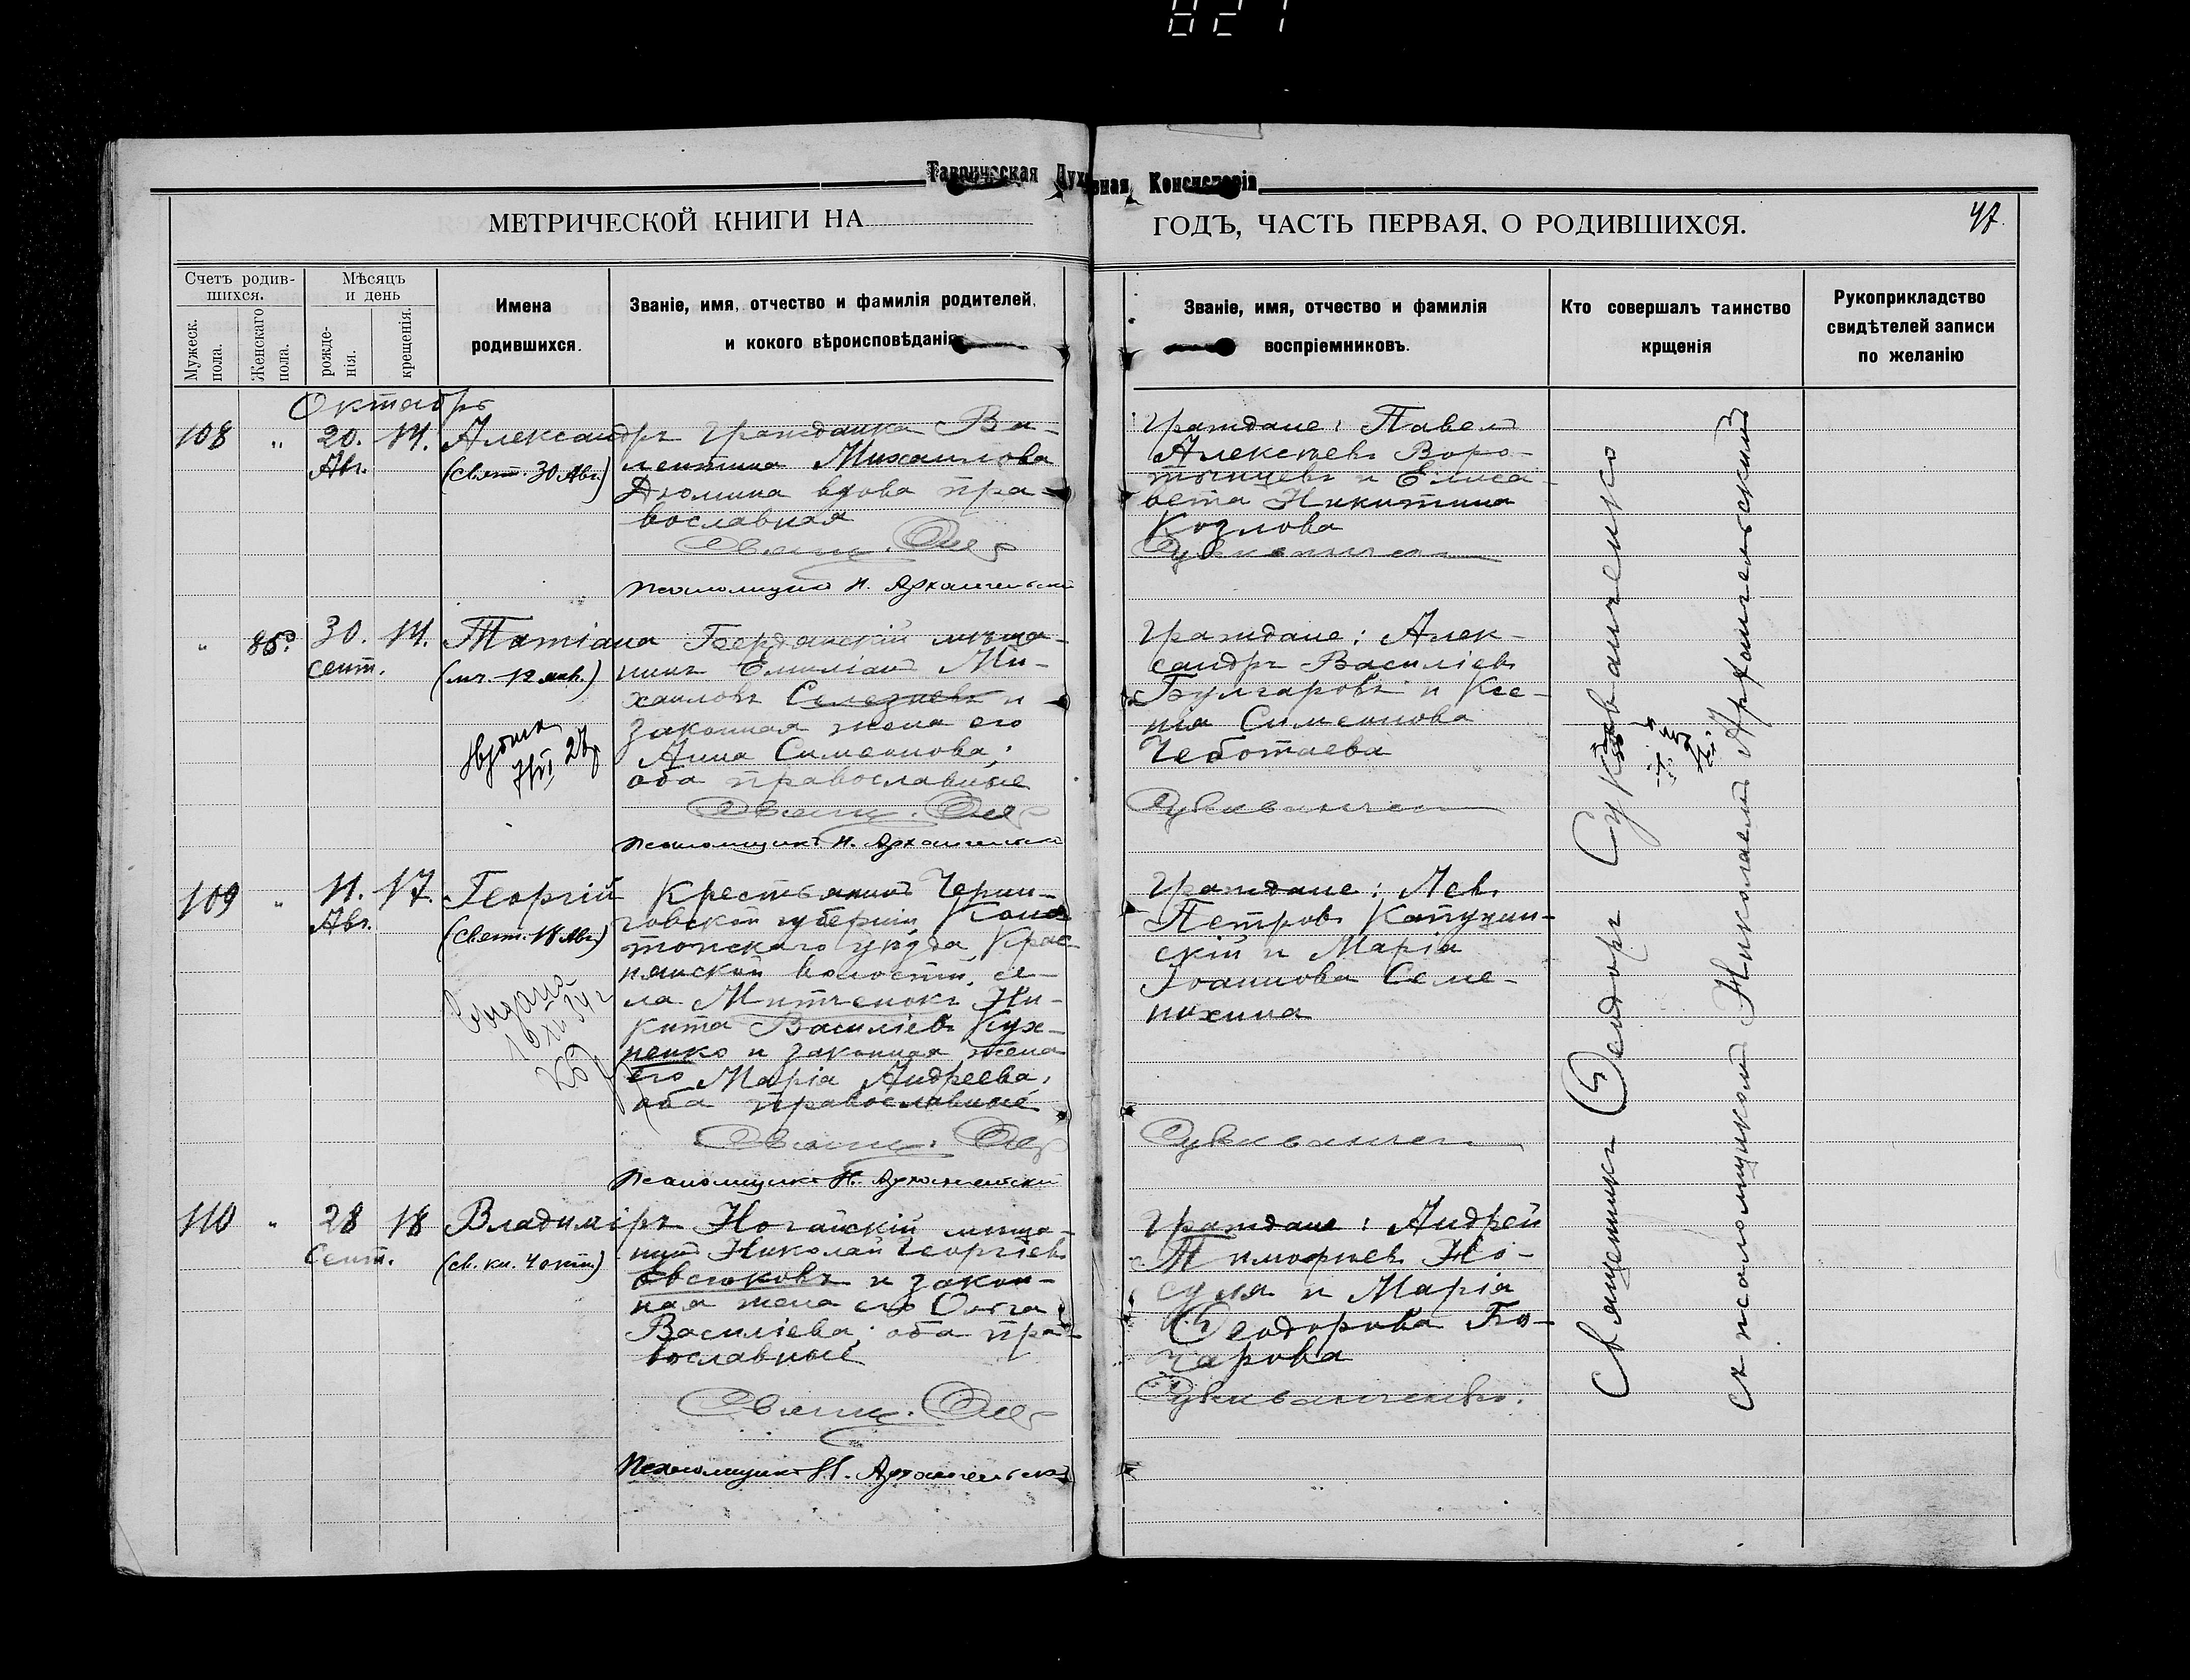 Таврическая Духовная Консисторія
МЕТРИЧЕСКОЙ КНИГИ НА
ГОДЪ, ЧАСТЬ ПЕРВАЯ, О РОДИВШИХСЯ.
47.
Счетъ родив-
шихся.
Мужеск.
пола.
Женскаго
пола.
Мѣсяцъ
и день
рожде-
нія.
крещенія.
Имена
родившихся.
Званіе, имя, отчество и фамилія родителей,
и кокого вѣроисповѣданія
Званіе, имя, отчество и фамилія
воспріемниковъ.
Кто совершалъ таинство
крщенія
Рукоприкладство
свидѣтелей записи
по желанію
Октябрь
108 " 20. 14. Александръ
Авг. (Свят. 30 Авг.)
Гражданка Ва-
лентина Михаилова
Дюмина вдова пра-
вославная
Псаломщикъ Н. Архангельскій
Граждане: Павелъ
Алексѣевъ Воро-
тынцевъ и Елиса-
вета Никитина
Козлова
" 85. 30. 14. Татіана
Сент. (мч. 12 янв.)
Бердянскій мѣща-
нинъ Емиліанъ Ми-
хаиловъ Селезневъ и
законная жена его
Анна Симеонова;
оба православные
Псаломщикъ Н. Архангельскій
Граждане: Алек-
сандръ Василіевъ
Булгаровъ и Ксе-
нія Симеонова
Чеботаева
109 " 11. 17. Георгій
Авг. (Свят. 18 Авг.)
Крестьянинъ Черни-
говской губерніи, Коно
топскаго уѣзда, Крас-
нянской волости, се-
ла Митченокъ Ни-
кита Василіевъ Кух-
ненко и законная жена
его Марія Андреева,
оба православные
Псаломщикъ Н. Архангельскій
Граждане: Левъ
Петровъ Капуцин-
скій и Марія
Іоаннова Селе-
пихина
110 " 28 18 Владиміръ
Сент. (св. кн. 4 окт.)
Ногайскій мѣща-
нинъ Николай Георгіевъ
Овсюковъ и закон-
ная жена его Ольга
Василіева; оба пра-
вославные
Псаломщикъ Н. Архангельскій
Граждане: Андрей
Тимофѣевъ Но-
суля и Марія
Ѳеодорова Го-
Священникъ Ѳеодоръ
съ псаломщикомъ Николаемъ Архангельскимъ